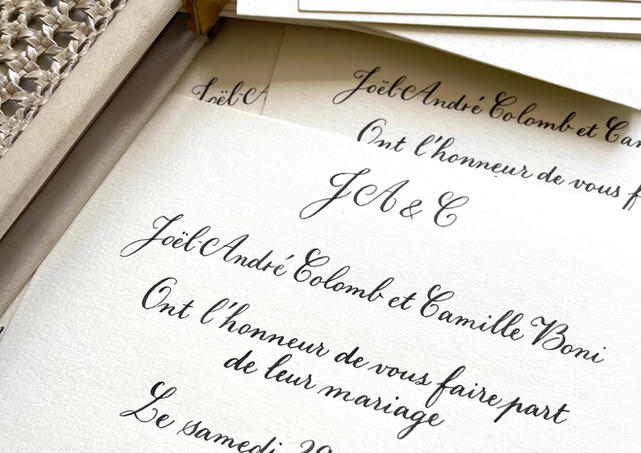 Joël-A
Joël-André Colomb et Cam
Ont l'honneur de vous f
JA & C
Joël-André Colomb et Camille Boni
Ont l'honneur de vous faire part
de leur mariage
Le samedi